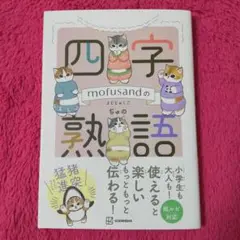 mofusandの
四字
熟語
じゅくご
小学生も
大人も!
使えると
楽しい
もっともっと
伝わる!
猪突
猛進
KODANSHA